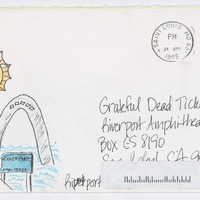 SAINT LOUIS, MO
PM
24 APR
1995
Grateful Dead Tick
Riverport Amphithea
Box CS 8190
CA
RIVERPORT
Riverport